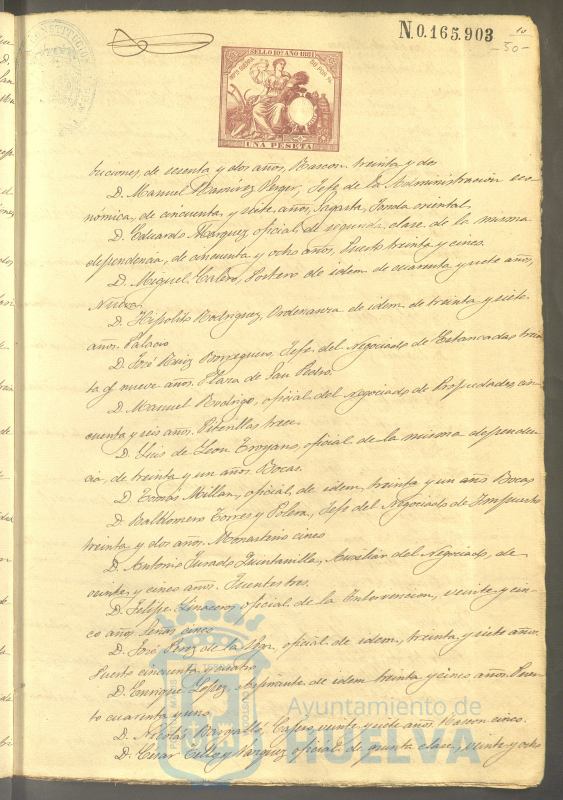 N.0.165.903
-50-
SELLO 10º AÑO 1881
UNA PESETA
buciones, de sesenta y dos años, Rascon treinta y dos
D. Manuel Ramirez Perez, Jefe de la Administración eco-
nómica, de cincuenta y siete años, Sagasta, Fonda oriental,
D. Eduardo Marquez, oficial de segunda clase de la misma
dependencia, de cincuenta y ocho años, Puerto treinta y cinco.
D. Miguel Calero, Portero de idem de cuarenta y siete años,
Nueva
D. Hipolito Rodriguez, Ordenanza de idem de treinta y siete
años. Palacio
D. José Ruiz Borreguero, Jefe del Negociado de Estancadas trein
ta y nueve años. Plaza de San Pedro.
D. Manuel Rodrigo, oficial del negociado de Propiedades cin
cuenta y seis años. Picnillas trece
D. Luis de Leon Troyano, oficial de la misma dependen
cia, de treinta y un años Bocas.
D Tomas Millan, oficial de idem, treinta y un años Bocas
D Baldomero Torres y Solera, Jefe del Negociado de Impuestos
treinta y dos años. Monasterio cinco
D. Antonio Jurado Quintanilla, Auxiliar del Negociado, de
veinte y cinco años. Fuentes tres.
D. Felipe Linaceros oficial de la Intervencion, veinte y cin-
co años Señas cinco
D. José Perez de la oficial de idem, treinta y siete años.
Puerto cincuenta y cuatro
D. Enrique Lopez, Aspirante de idem treinta y cinco años. Puer
to cuarenta y uno
D. Nicolás Cajero, veinte y siete años. Rascon cinco.
D. Cesar y Vazquez oficial de quinta clase, veinte y ocho
Ayuntamiento de
HUELVA